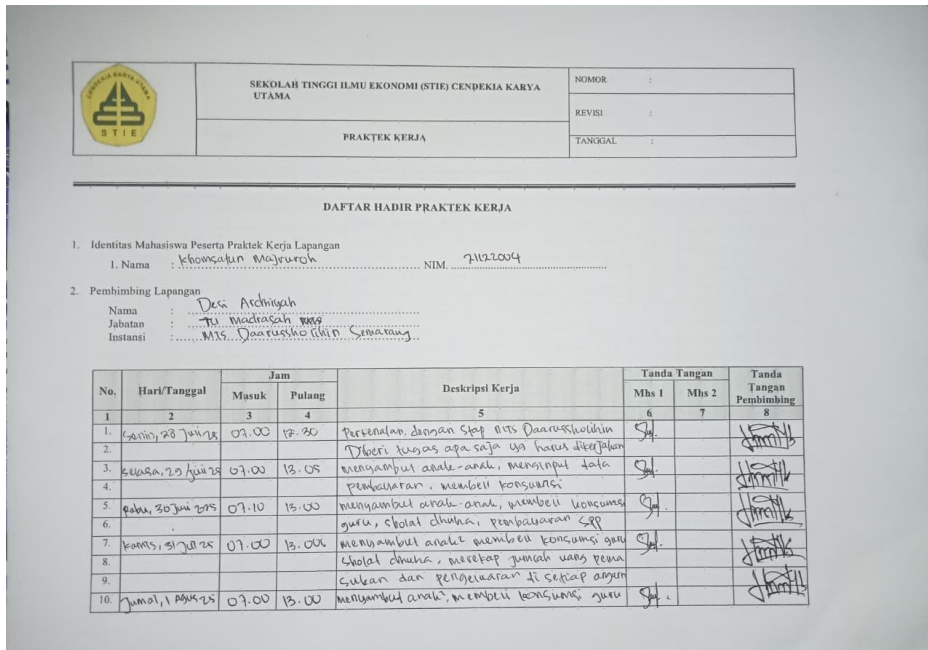 CENDEKIA KARYA UTAMA
STIE
SEKOLAH TINGGI ILMU EKONOMI (STIE) CENDEKIA KARYA
UTAMA
PRAKTEK KERJA
NOMOR :
REVISI :
TANGGAL :
DAFTAR HADIR PRAKTEK KERJA
1. Identitas Mahasiswa Peserta Praktek Kerja Lapangan
1. Nama : Khomsatun Majruroh NIM. 21122004
2. Pembimbing Lapangan
Nama : Desi Archiyah
Jabatan : TU Madrasah
Instansi : MTS Daarussholihin Semarang
No. Hari/Tanggal Jam Deskripsi Kerja Tanda Tangan Tanda Tangan Pembimbing
Masuk Pulang Mhs 1 Mhs 2
1 2 3 4 5 6 7 8
1. Senin, 28 Juli 25 07.00 12.30 Perkenalan dengan Staf MTS Daarussholihin
2. Diberi tugas apa saja yg harus dikerjakan
3. Selasa, 29 Juli 25 07.00 13.05 menyambut anak-anak, menginput data
4. pembayaran, membeli konsumsi
5. Rabu, 30 Juni 2025 07.10 13.00 menyambut anak-anak, membeli konsumsi
6. guru, sholat dhuha, pembayaran SPP
7. Kamis, 31 Juli 25 07.00 13.00 menyambut anak² membeli konsumsi guru
8. Sholat dhuha, merekap jumlah uang pema
9. sukan dan pengeluaran di setiap
10. Jumat, 1 Agus 25 07.00 13.00 menyambut anak², membeli konsumsi guru